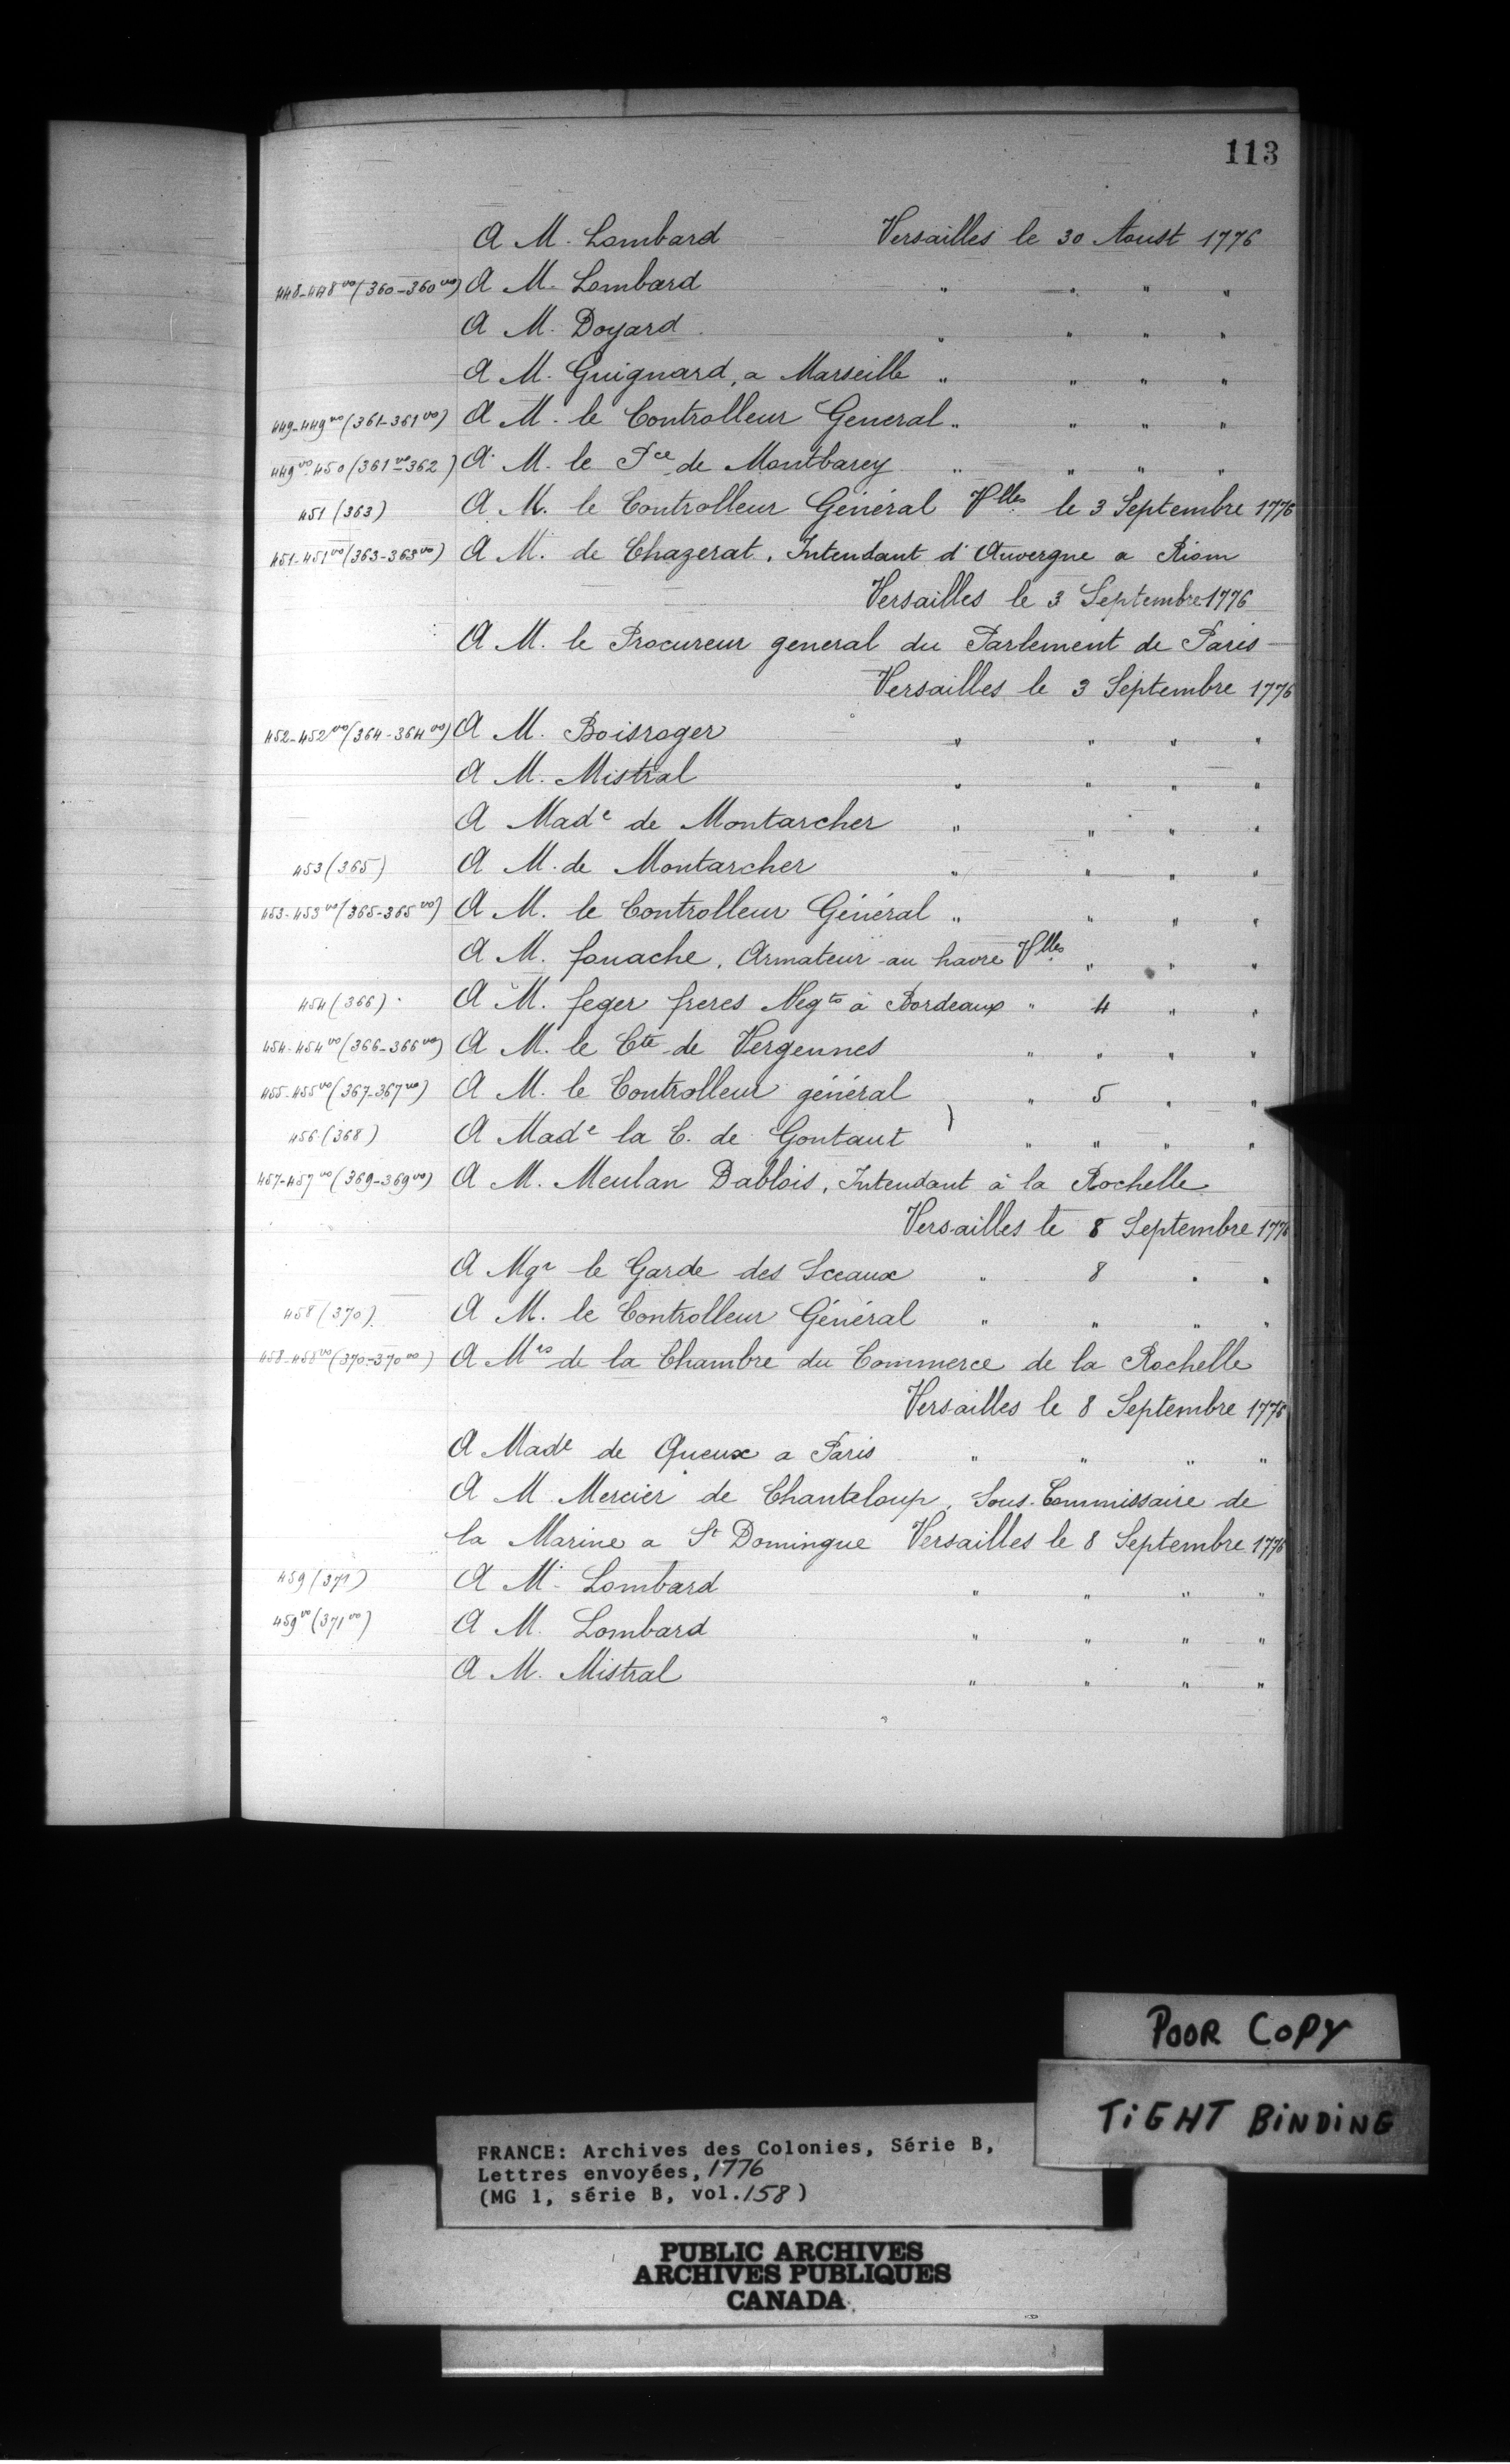 113
A M. Lombard Versailles le 30 Aoust 1776
448-448 vo (360-360 vo) A M. Lombard " " " "
A M. Doyard " " " "
A M. Guignard, a Marseille " " " "
449-449 vo (361-361 vo) A M. le Controlleur General " " " "
449 vo-450 (361 vo-362) A M. le Pce de Montbarey " " " "
451 (363) A M. le Controlleur Général Vlles le 3 Septembre 1776
451-451 vo (363-363 vo) A M. de Chazerat, Intendant d'Auvergne a Riom
Versailles le 3 Septembre 1776
A M. le Procureur general du Parlement de Paris
Versailles le 3 Septembre 1776
452-452 vo (364-364 vo) A M. Boisroger " " " "
A M. Mistral " " " "
A Made de Montarcher " " " "
453 (365) A M. de Montarcher " " " "
453-453 vo (365-365 vo) A M. le Controlleur Général " " " "
A M. fouache, Armateur au havre Vlles " " "
454 (366) A M. feger freres Negts à Bordeaux " 4 " "
454-454 vo (366-366 vo) A M. le Cte de Vergennes " " " "
455-455 vo (367-367 vo) A M. le Controlleur général " 5 " "
456 (368) A Made la C. de Gontaut " " " "
457-457 vo (369-369 vo) A M. Meulan Dablois, Intendant à la Rochelle
Versailles le 8 Septembre 1776
A Mgr le Garde des Sceaux " 8 " "
458 (370) A M. le Controlleur Général " " " "
458-458 vo (370-370 vo) A Mrs de la Chambre du Commerce de la Rochelle
Versailles le 8 Septembre 1776
A Made de Queux a Paris " " " "
A M Mercier de Chanteloup, Sous-Commissaire de
la Marine a St Domingue Versailles le 8 Septembre 1776
459 (371) A M. Lombard " " " "
459 vo (371 vo) A M. Lombard " " " "
A M. Mistral " " " "
POOR COPY
TIGHT BINDING
FRANCE: Archives des Colonies, Série B,
Lettres envoyées, 1776
(MG 1, série B, vol. 158)
PUBLIC ARCHIVES
ARCHIVES PUBLIQUES
CANADA